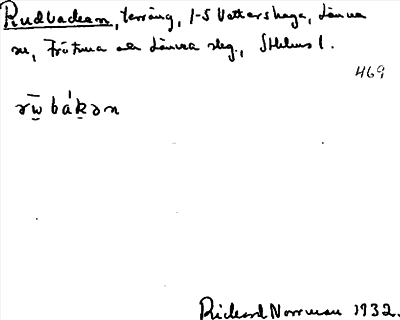 Rudbacken, terräng, 1-5 Vettershaga, Länna
sn, Frötuna och Länna skg., Sthlms l.
469
rω̄bákən
Rickard Norrman 1932.